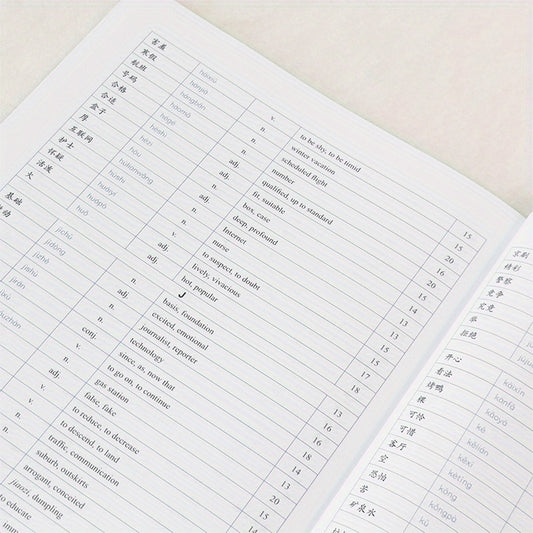 害羞 hàixiū v. to be shy, to be timid 15
寒假 hánjià n. winter vacation 15
航班 hángbān n. scheduled flight 20
号码 hàomǎ n. number 16
合格 hégé adj. qualified, up to standard 20
合适 héshì adj. fit, suitable 15
盒子 hézi n. box, case 14
厚 hòu adj. deep, profound 13
互联网 hùliánwǎng n. Internet 13
护士 hùshi n. nurse 15
怀疑 huáiyí v. to suspect, to doubt 15
活泼 huópō adj. lively, vivacious 17
火 huǒ adj. hot, popular 18
J
基础 jīchǔ n. basis, foundation 13
激动 jīdòng adj. excited, emotional 16
jìzhě n. journalist, reporter 16
jìshù n. technology 18
jìrán conj. since, as, now that 14
v. to go on, to continue 13
n. gas station 20
adj. false, fake 20
v. to reduce, to decrease
v. to descend, to land
n. traffic, communication
n. suburb, outskirts
adj. arrogant, conceited
n. jiaozi, dumpling
to educate
京剧
精彩
警察
竞争
究竟
拒绝
开心 kāixīn
看法 kànfǎ
烤鸭 kǎoyā
棵 kē
可怜 kělián
可惜 kěxī
客厅 kètīng
空 kōng
恐怕 kǒngpà
苦 kǔ
矿泉水